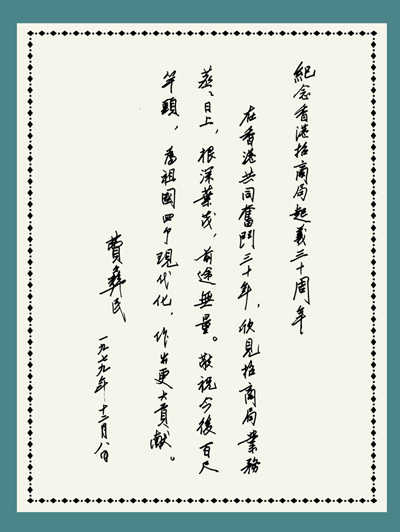 紀念香港招商局起義三十周年
在香港共同奮鬥三十年，欣見招商局業務
蒸々日上，根深葉茂，前途無量。敬祝今後百尺
竿頭，為祖國四个現代化，作出更大貢獻。
費彝民
一九七九年十二月八日